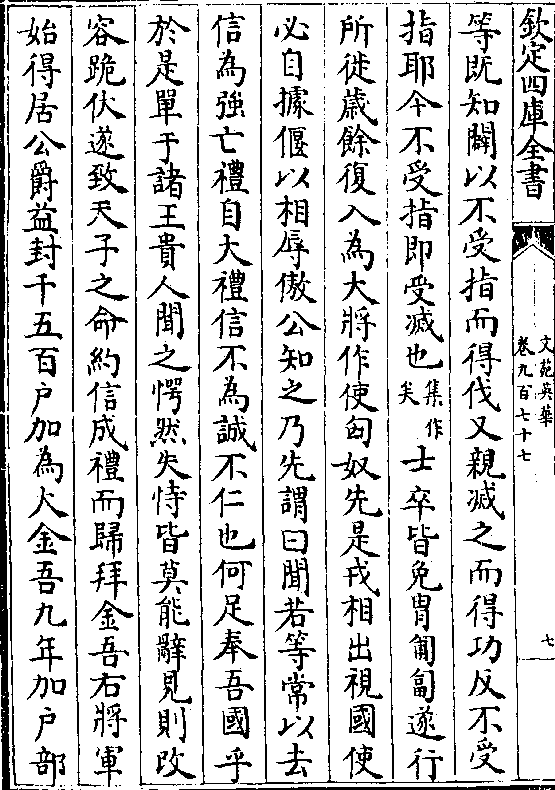 欽定四庫全書
文苑英華
卷九百七十七
七
等既知闗以不受指而得伐又親滅之而得功反不受
指耶今不受指即受滅也集作矣士卒皆免胄匍匐遂行
所徙歲餘復入為大將作使匈奴先是戎相出視國使
必自據偃以相辱傲公知之乃先謂曰聞若等常以去
信為強亡禮自大禮信不為誠不仁也何足奉吾國乎
於是單于諸王貴人聞之愕然失恃皆莫能辭見則改
容跪伏遂致天子之命約信成禮而歸拜金吾右將軍
始得居公爵益封千五百戶加為大金吾九年加戶部